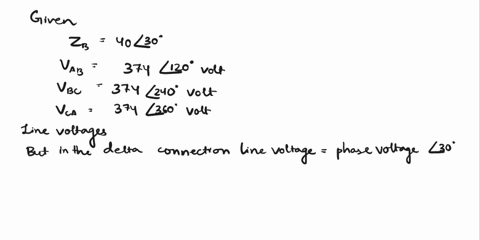 Given
Z_B = 40∠30°
V_AB = 374 ∠120° volt
V_BC = 374 ∠240° volt
V_CA = 374 ∠360° volt
Line voltages
But in the delta connection line voltage = phase voltage ∠30°